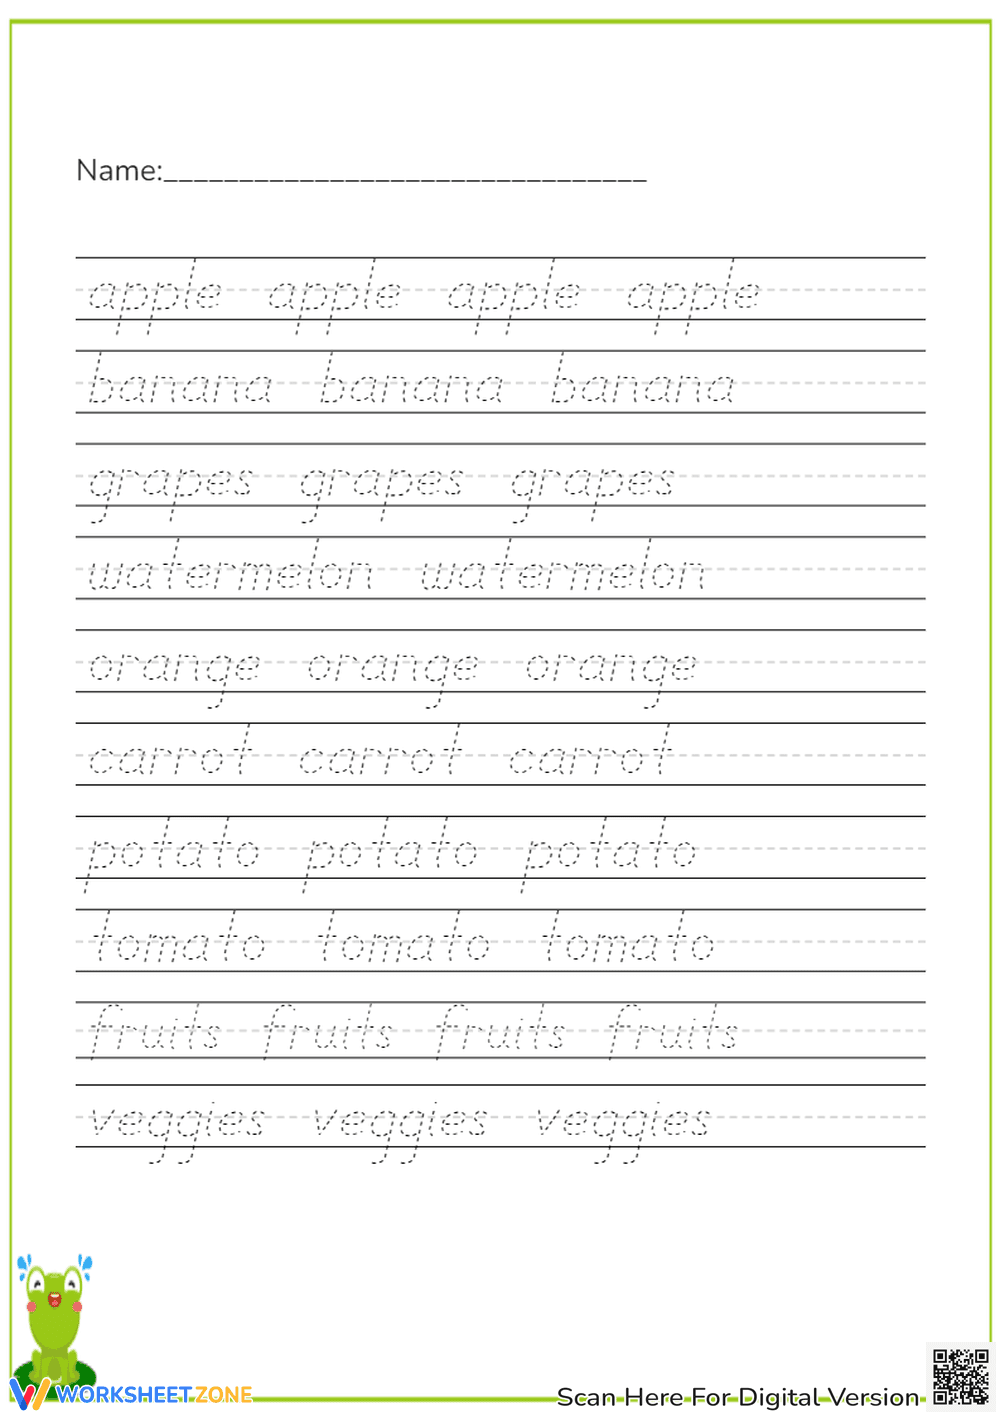 Name:________________________________
apple apple apple apple
banana banana banana
grapes grapes grapes
watermelon watermelon
orange orange orange
carrot carrot carrot
potato potato potato
tomato tomato tomato
fruits fruits fruits fruits
veggies veggies veggies
WORKSHEETZONE
Scan Here For Digital Version